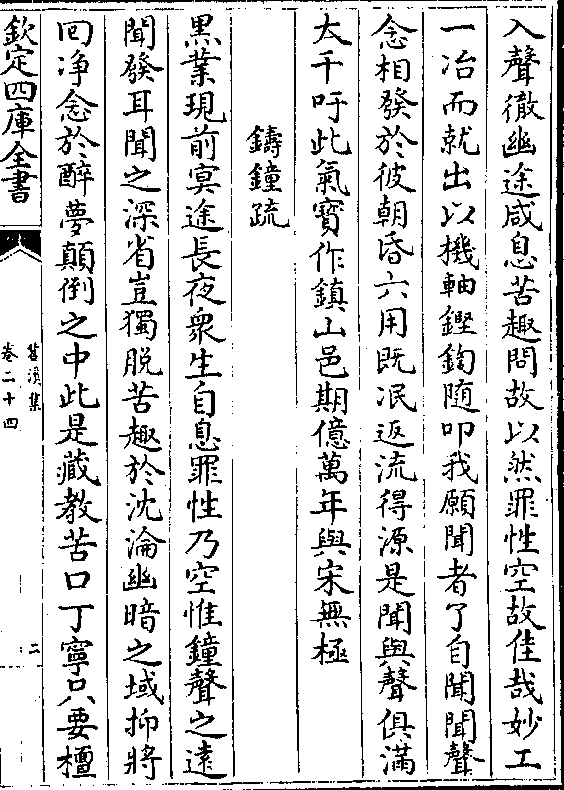 入聲徹幽途咸息苦趣問故以然罪性空故佳哉妙工
一冶而就出以機軸鏗鍧随叩我願聞者了自聞聞聲
念相發於彼朝昏六用既泯返流得源是聞與聲俱滿
大千吁此氣寳作鎮山邑期億萬年與宋無極
鑄鐘疏
黒業現前冥途長夜衆生自息罪性乃空惟鐘聲之遠
聞發耳聞之深省豈獨脱苦趣於沈淪幽暗之域抑將
回净念於醉夢顛倒之中此是藏教苦口丁寧只要檀
欽定四庫全書
卷二十四
二